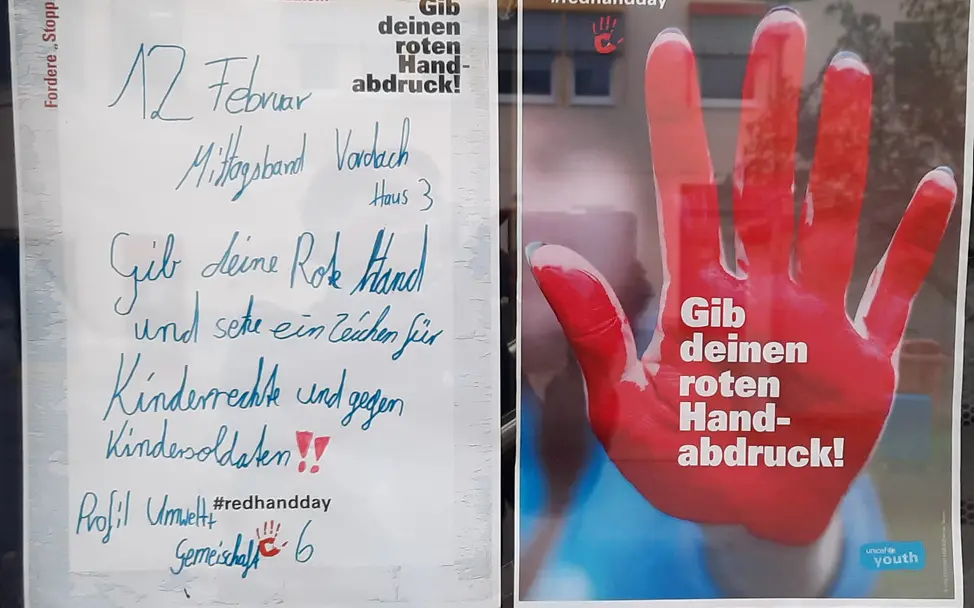 Fordere „Stopp
Gib
deinen
roten
Hand-
abdruck!
12 Februar
Mittagsband Vordach
Haus 3
Gib deine Rote Hand
und setze ein Zeichen für
Kinderrechte und gegen
Kindersoldaten!!
#redhandday
Profil Umwelt+
Gemeischaft 6
#redhandday
Gib
deinen
roten
Hand-
abdruck!
unicef
youth